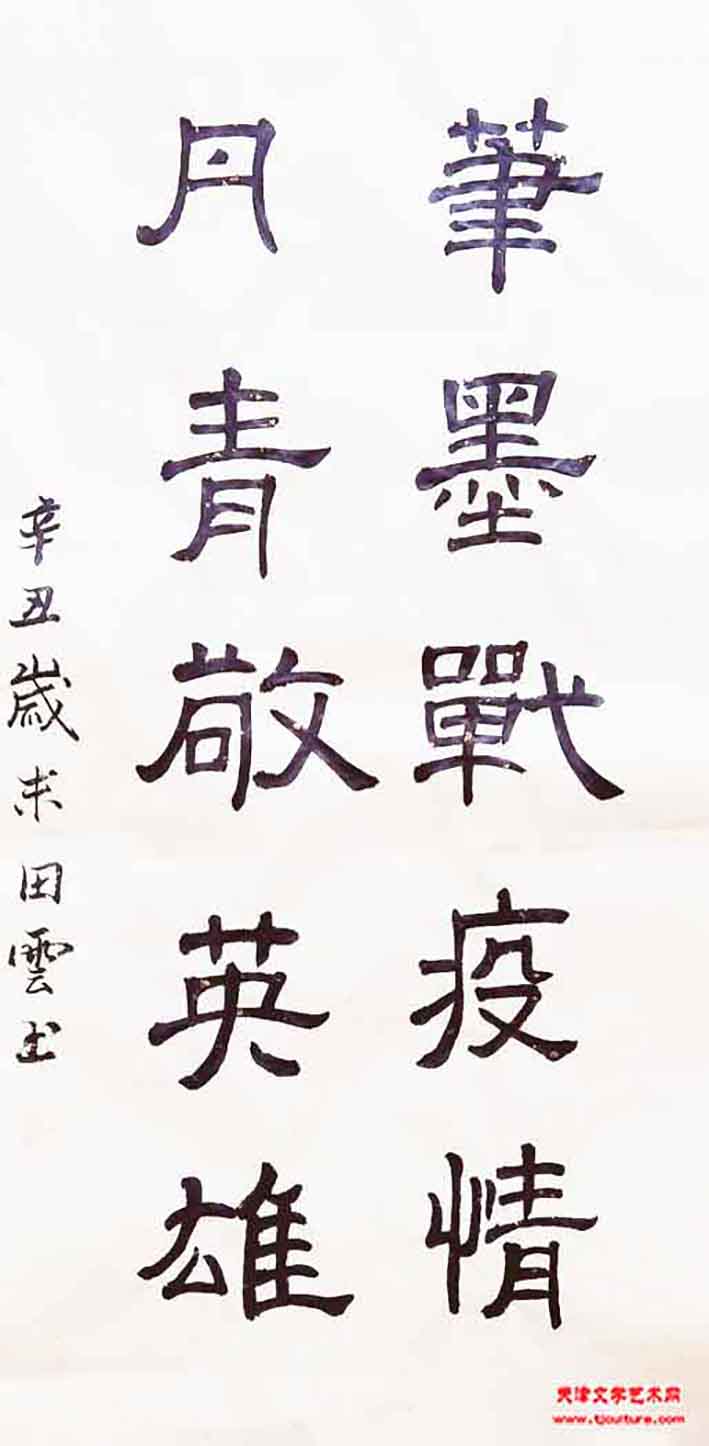 筆墨戰疫情
丹青敬英雄
辛丑歲末田雲书
天津文学艺术网
www.tjculture.com